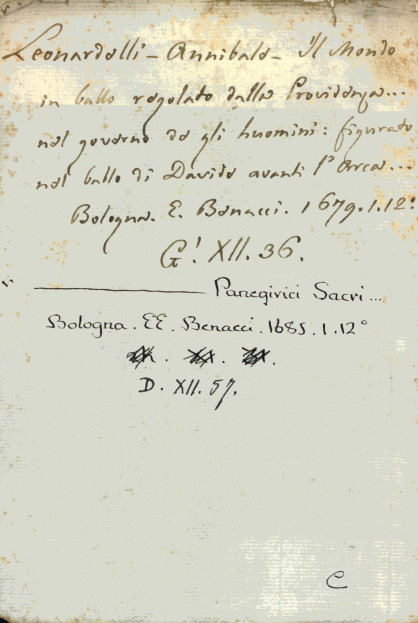 Leonardelli - Annibale - Il Mondo
in ballo regolato dalla Providenza...
nel governo de gli huomini: figurato
nel ballo di Davide avanti l'Arca...
Bologna. E. Benacci. 1679. 1. 12°
G! XII. 36.
Panegirici Sacri...
Bologna. EE. Benacci. 1685. 1. 12°
D. XII. 57.
C